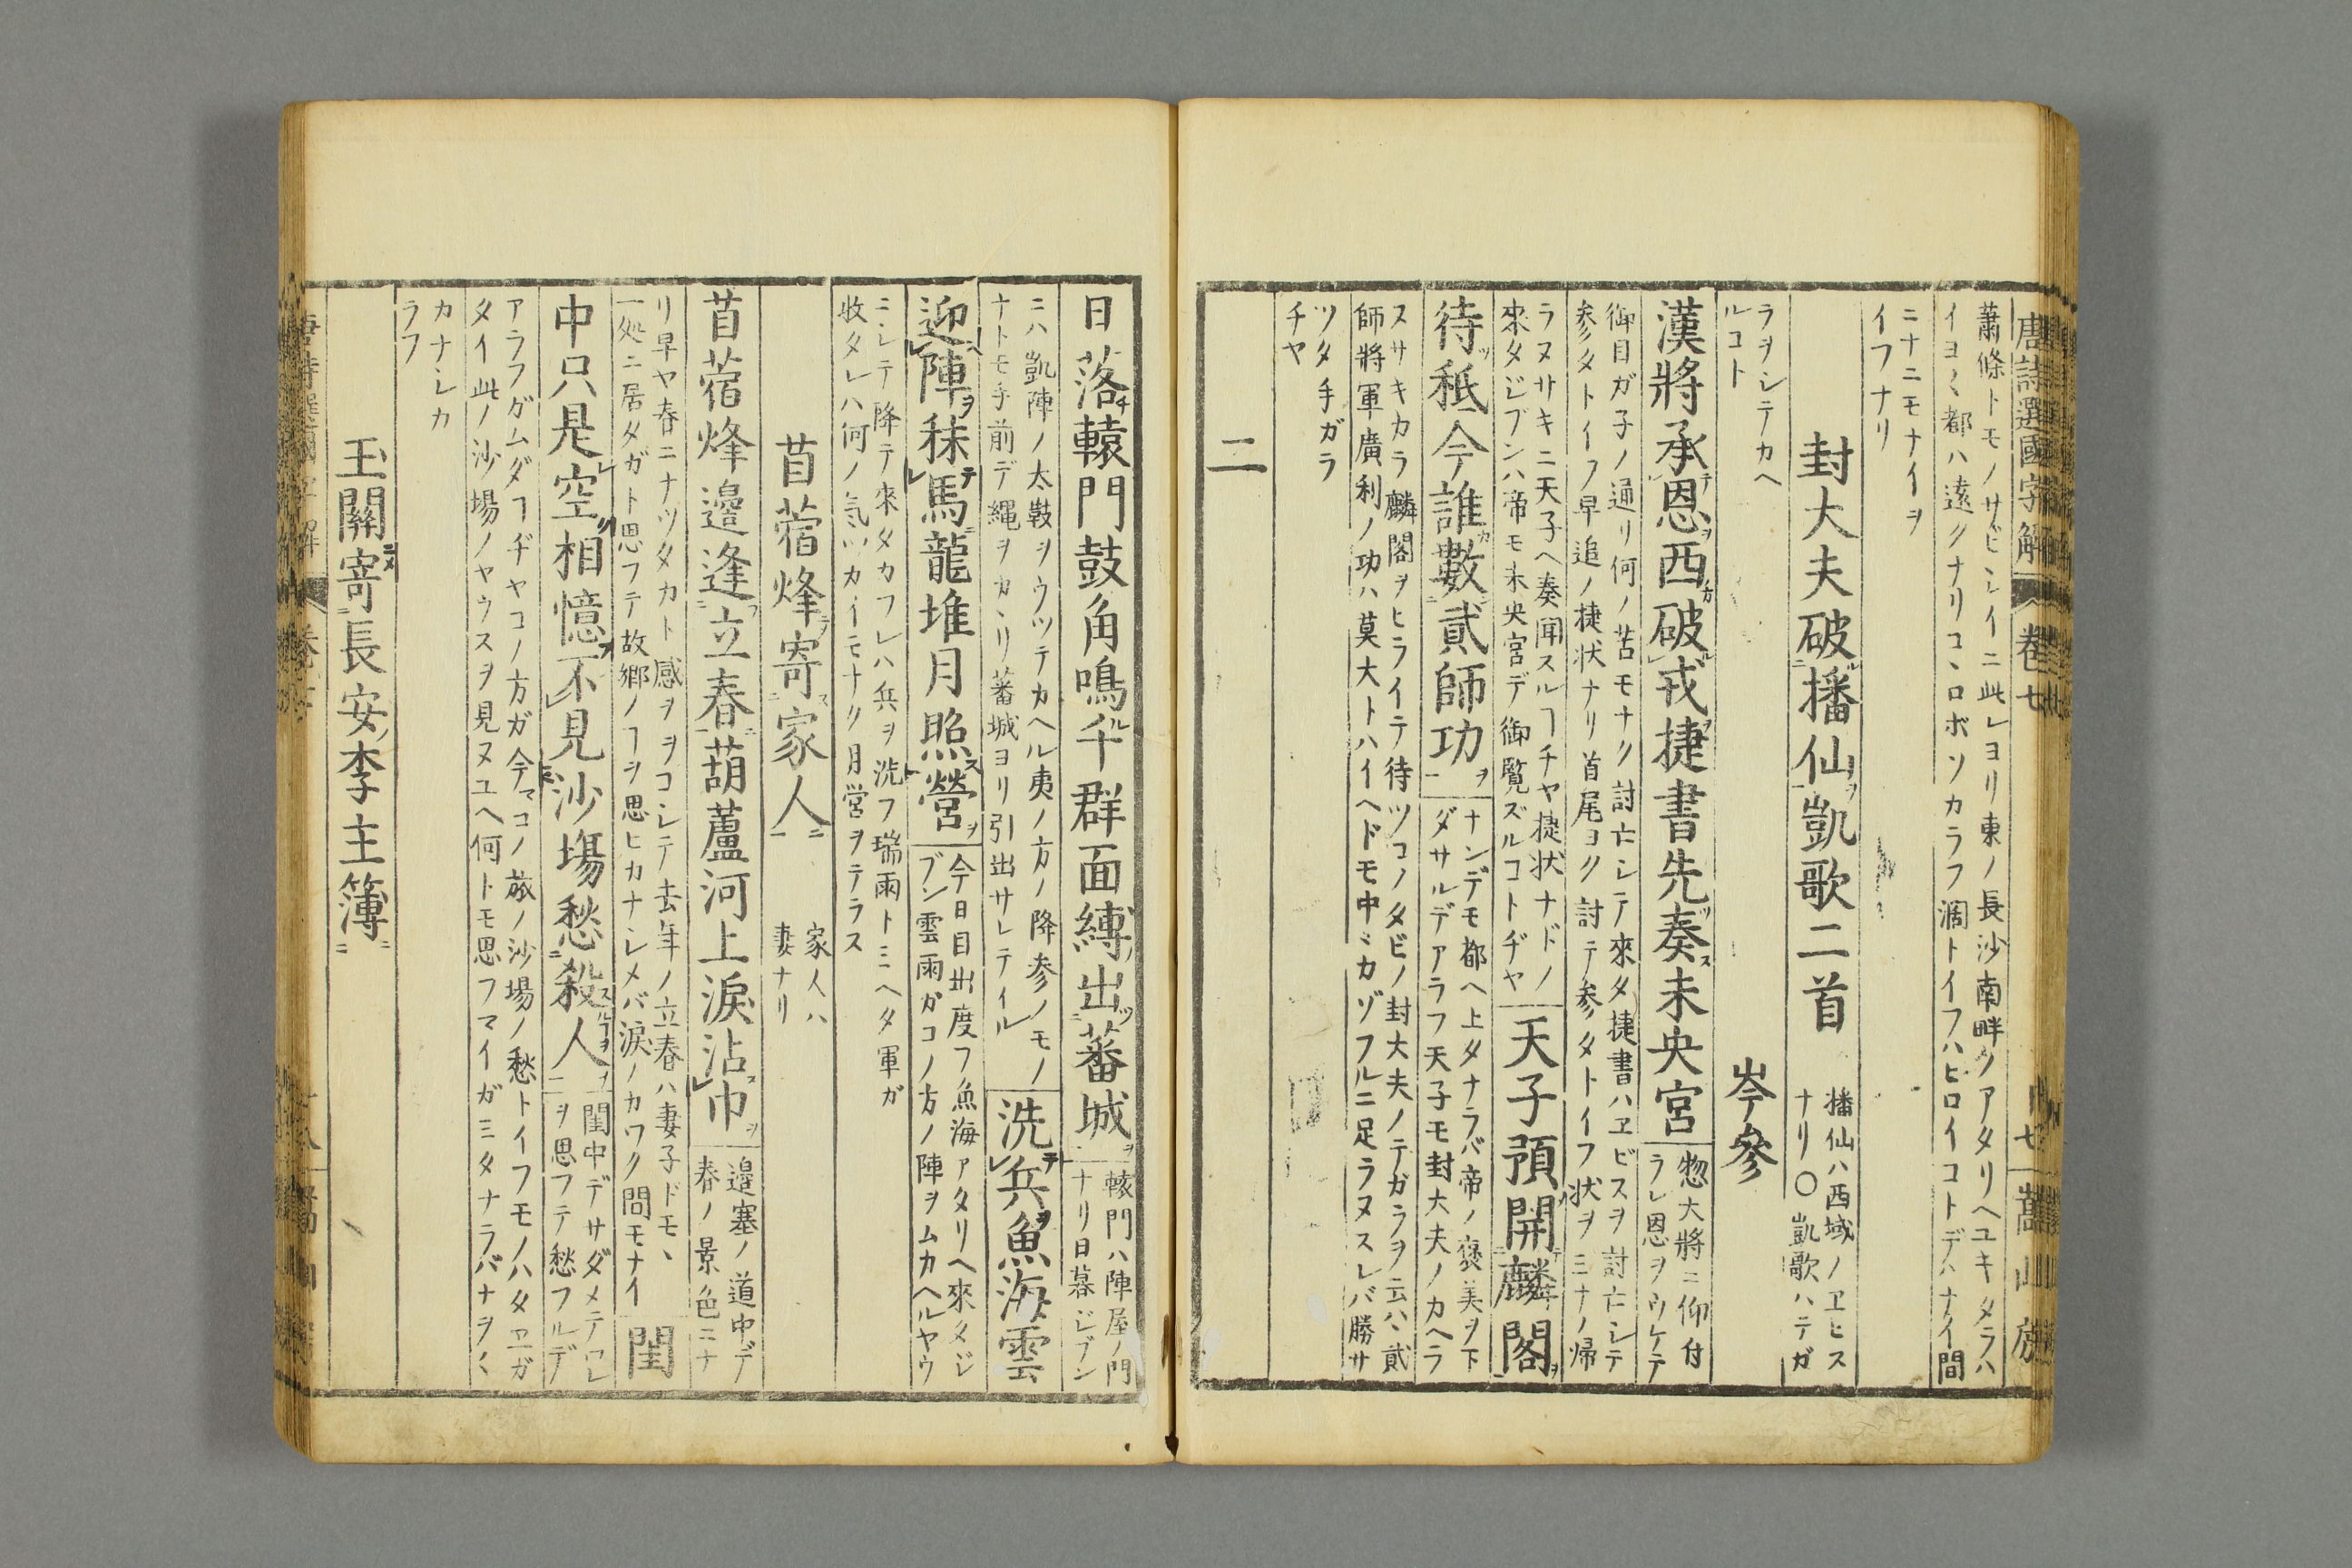 唐詩選國字解 卷七 十七 嵩山房
蕭條トモノサビシイニ此レヨリ東ノ長沙南畔クアタリヘユキタラハ
イヨ〱都ハ遠クナリコヽロボソカラフ濶トイフハヒロイコトデハナイ間
ニナニモナイヲ
イフナリ
封大夫破播仙凱歌二首
播仙ハ西域ノヱヒス
ナリ〇凱歌ハテガ
ラヲシテカヘ
ルコト
岑參
漢將承恩西破戎捷書先奏未央宮
惣大將ニ仰付
ラレ恩ヲウケテ
御目ガ子ノ通リ何ノ苦モナク討亡シテ來タ捷書ハヱビスヲ討亡シテ
参タトイフ早追ノ捷状ナリ首尾ヨク討テ参タトイフ状ヲミナノ帰
ラヌサキニ天子ヘ奏聞スルヿヂヤ捷状ナドノ
來タジブンハ帝モ未央宮デ御覧ズルコトヂヤ
天子預開麟閣
待秖今誰數貳師功
ナンデモ都ヘ上タナラバ帝ノ褒美ヲ下
ダサルデアラフ天子モ封大夫ノカヘラ
スサキカラ麟閣ヲヒライテ待ツコノタビノ封大夫ノテガラヲ云ハヽ貳
師將軍廣利ノ功ハ莫大トハイヘドモ中〻カゾフルニ足ラヌスレバ勝サ
ツタ手ガラ
チヤ
二
日落轅門鼓角鳴千群面縛出蕃城
轅門ハ陣屋ノ門
ナリ日暮ジブン
ニハ凱陣ノ太鼓ヲウツテカヘル夷ノ方ノ降参ノモノ
ナトモ手前デ縄ヲカヽリ蕃城ヨリ引出サレテイル
洗兵魚海雲
迎陣秣馬龍堆月照營
今日目出度フ魚海アタリヘ來タジ
ブン雲雨ガコノ方ノ陣ヲムカヘルヤウ
ニシテ降テ來タカフレハ兵ヲ洗フ瑞雨トミヘタ軍ガ
收タレハ何ノ氣ツカイモナク月営ヲテラス
苜蓿烽寄家人
家人ハ
妻ナリ
苜蓿烽邉逢立春葫蘆河上淚沾巾
邉塞ノ道中デ
春ノ景色ニナ
リ早ヤ春ニナツタカト感ヲヲコシテ去年ノ立春ハ妻子ドモヽ
一処ニ居タガト思フテ故郷ノヿヲ思ヒカナシメバ淚ノカワク間モナイ
閨
中只是空相憶不見沙塲愁殺人
閨中デサダメテワレ
ヲ思フテ愁フルデ
アラフガムダヿヂヤコノ方ガ今マコノ旅ノ沙場ノ愁トイフモノハタヱガ
タイ此ノ沙場ノヤウスヲ見ヌユヘ何トモ思フマイガミタナラバナヲ〱
カナシカ
ラフ
玉關寄長安李主簿